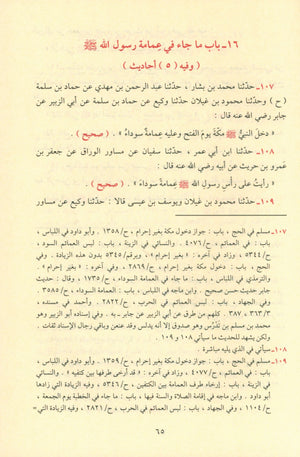 ١٦ـ باب ما جاء في عِمامة رسول الله ﷺ
( وفيه (٥) أحاديث )
١٠٧ـ حدّثنا محمد بن بشار ، حدّثنا عبد الرحمن بن مهدي عن حماد بن سلمة
( ح ) وحدّثنا محمود بن غيلان حدّثنا وكيع عن حماد بن سلمة عن أبي الزبير عن
جابر رضي الله عنه قال :
« دخلَ النبيُّ ﷺ مكّةَ يومَ الفتح وعليه عِمامةٌ سوداءُ » . ( صحيح ) .
١٠٨ـ حدّثنا ابن أبي عمر ، حدّثنا سفيان عن مساور الوراق عن جعفر بن
عمرو بن حريث عن أبيه رضي الله عنه قال :
« رأيتُ على رأسِ رسول الله ﷺ عِمامةً سوداءَ » . ( صحيح ) .
١٠٩ـ حدّثنا محمود بن غيلان ويوسف بن عيسى قالا : حدّثنا وكيع عن مساور
١٠٧ـ مسلم في الحج ، باب : جواز دخول مكة بغير إحرام ، ح/١٣٥٨ . وأبو داود في اللباس ،
باب : في العمائم ، ح/٤٠٧٦ . والنسائي في الزينة ، باب : لبس العمائم السود ،
ح/٥٣٤٤ ، وزاد في آخره : « بغير إحرام » ، وبرقم/٥٣٤٥ بدون هذه الزيادة . وفي
الحج ، باب : دخول مكة بغير إحرام ، ح/٢٨٦٩ ، وفي آخره : « بغير إحرام » .
والترمذي في اللباس ، باب : ما جاء في العمامة السوداء ، ح/١٧٣٥ ، وقال : حديث
جابر حديث حسن صحيح . وابن ماجه في اللباس ، باب : العمامة السوداء ، ح/٣٥٨٥ .
وفي الجهاد ، باب : لبس العمائم في الحرب ، ح/٢٨٢٢ . وأحمد في مسنده ،
٣٦٣/٣ ، ٣٨٧ . كلهم من طرق عن أبي الزبير عن جابر ـ به . وفي إسناده أبو الزبير وهو
محمد بن مسلم بن تَدْرُس وهو صدوق إلا أنه يدلس وقد عنعن وباقي رجال الإسناد ثقات .
ولكن يشهد للحديث ما سيأتي ١٠٨ و ١٠٩ .
١٠٨ـ سيأتي في الذي يليه مباشرة .
١٠٩ـ مسلم في الحج ، باب : جواز دخول مكة بغير إحرام ، ح/١٣٥٩ . وأبو داود في اللباس ،
باب : في العمائم ، ح/٤٠٧٧ ، وزاد في آخره : « قد أرخى طرفها بين كتفيه » . والنسائي
في الزينة ، باب : إرخاء طرف العمامة بين الكتفين ، ح/٥٣٤٦ ، وفيه الزيادة التي زادها
أبو داود . وابن ماجه في إقامة الصلاة والسنة فيها ، باب : ما جاء في الخطبة يوم الجمعة ،
ح/١١٠٤ ، وفي الجهاد ، باب : لبس العمائم في الحرب ، ح/٢٨٢١ ، وفيه الزيادة التي =
٦٥